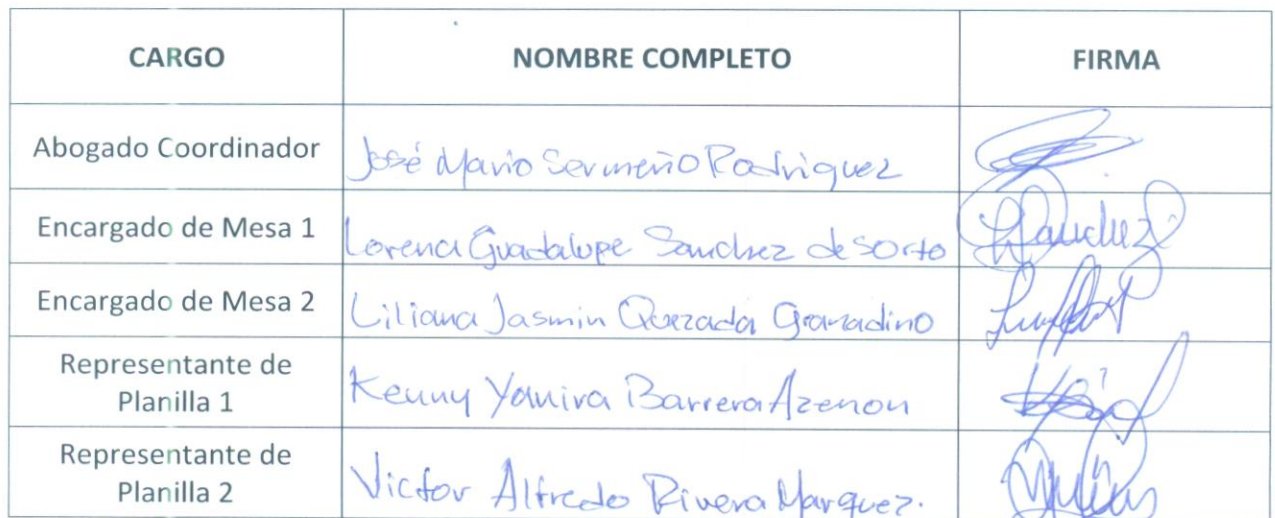 CARGO NOMBRE COMPLETO FIRMA
Abogado Coordinador José Mario Sermeño Rodriguez
Encargado de Mesa 1 Lorena Guadalupe Sanchez de Sorto LSanchez
Encargado de Mesa 2 Liliana Jasmin Quezada Granadino
Representante de
Planilla 1 Kenny Yamira Barrera Azenon
Representante de
Planilla 2 Victor Alfredo Rivera Marquez.